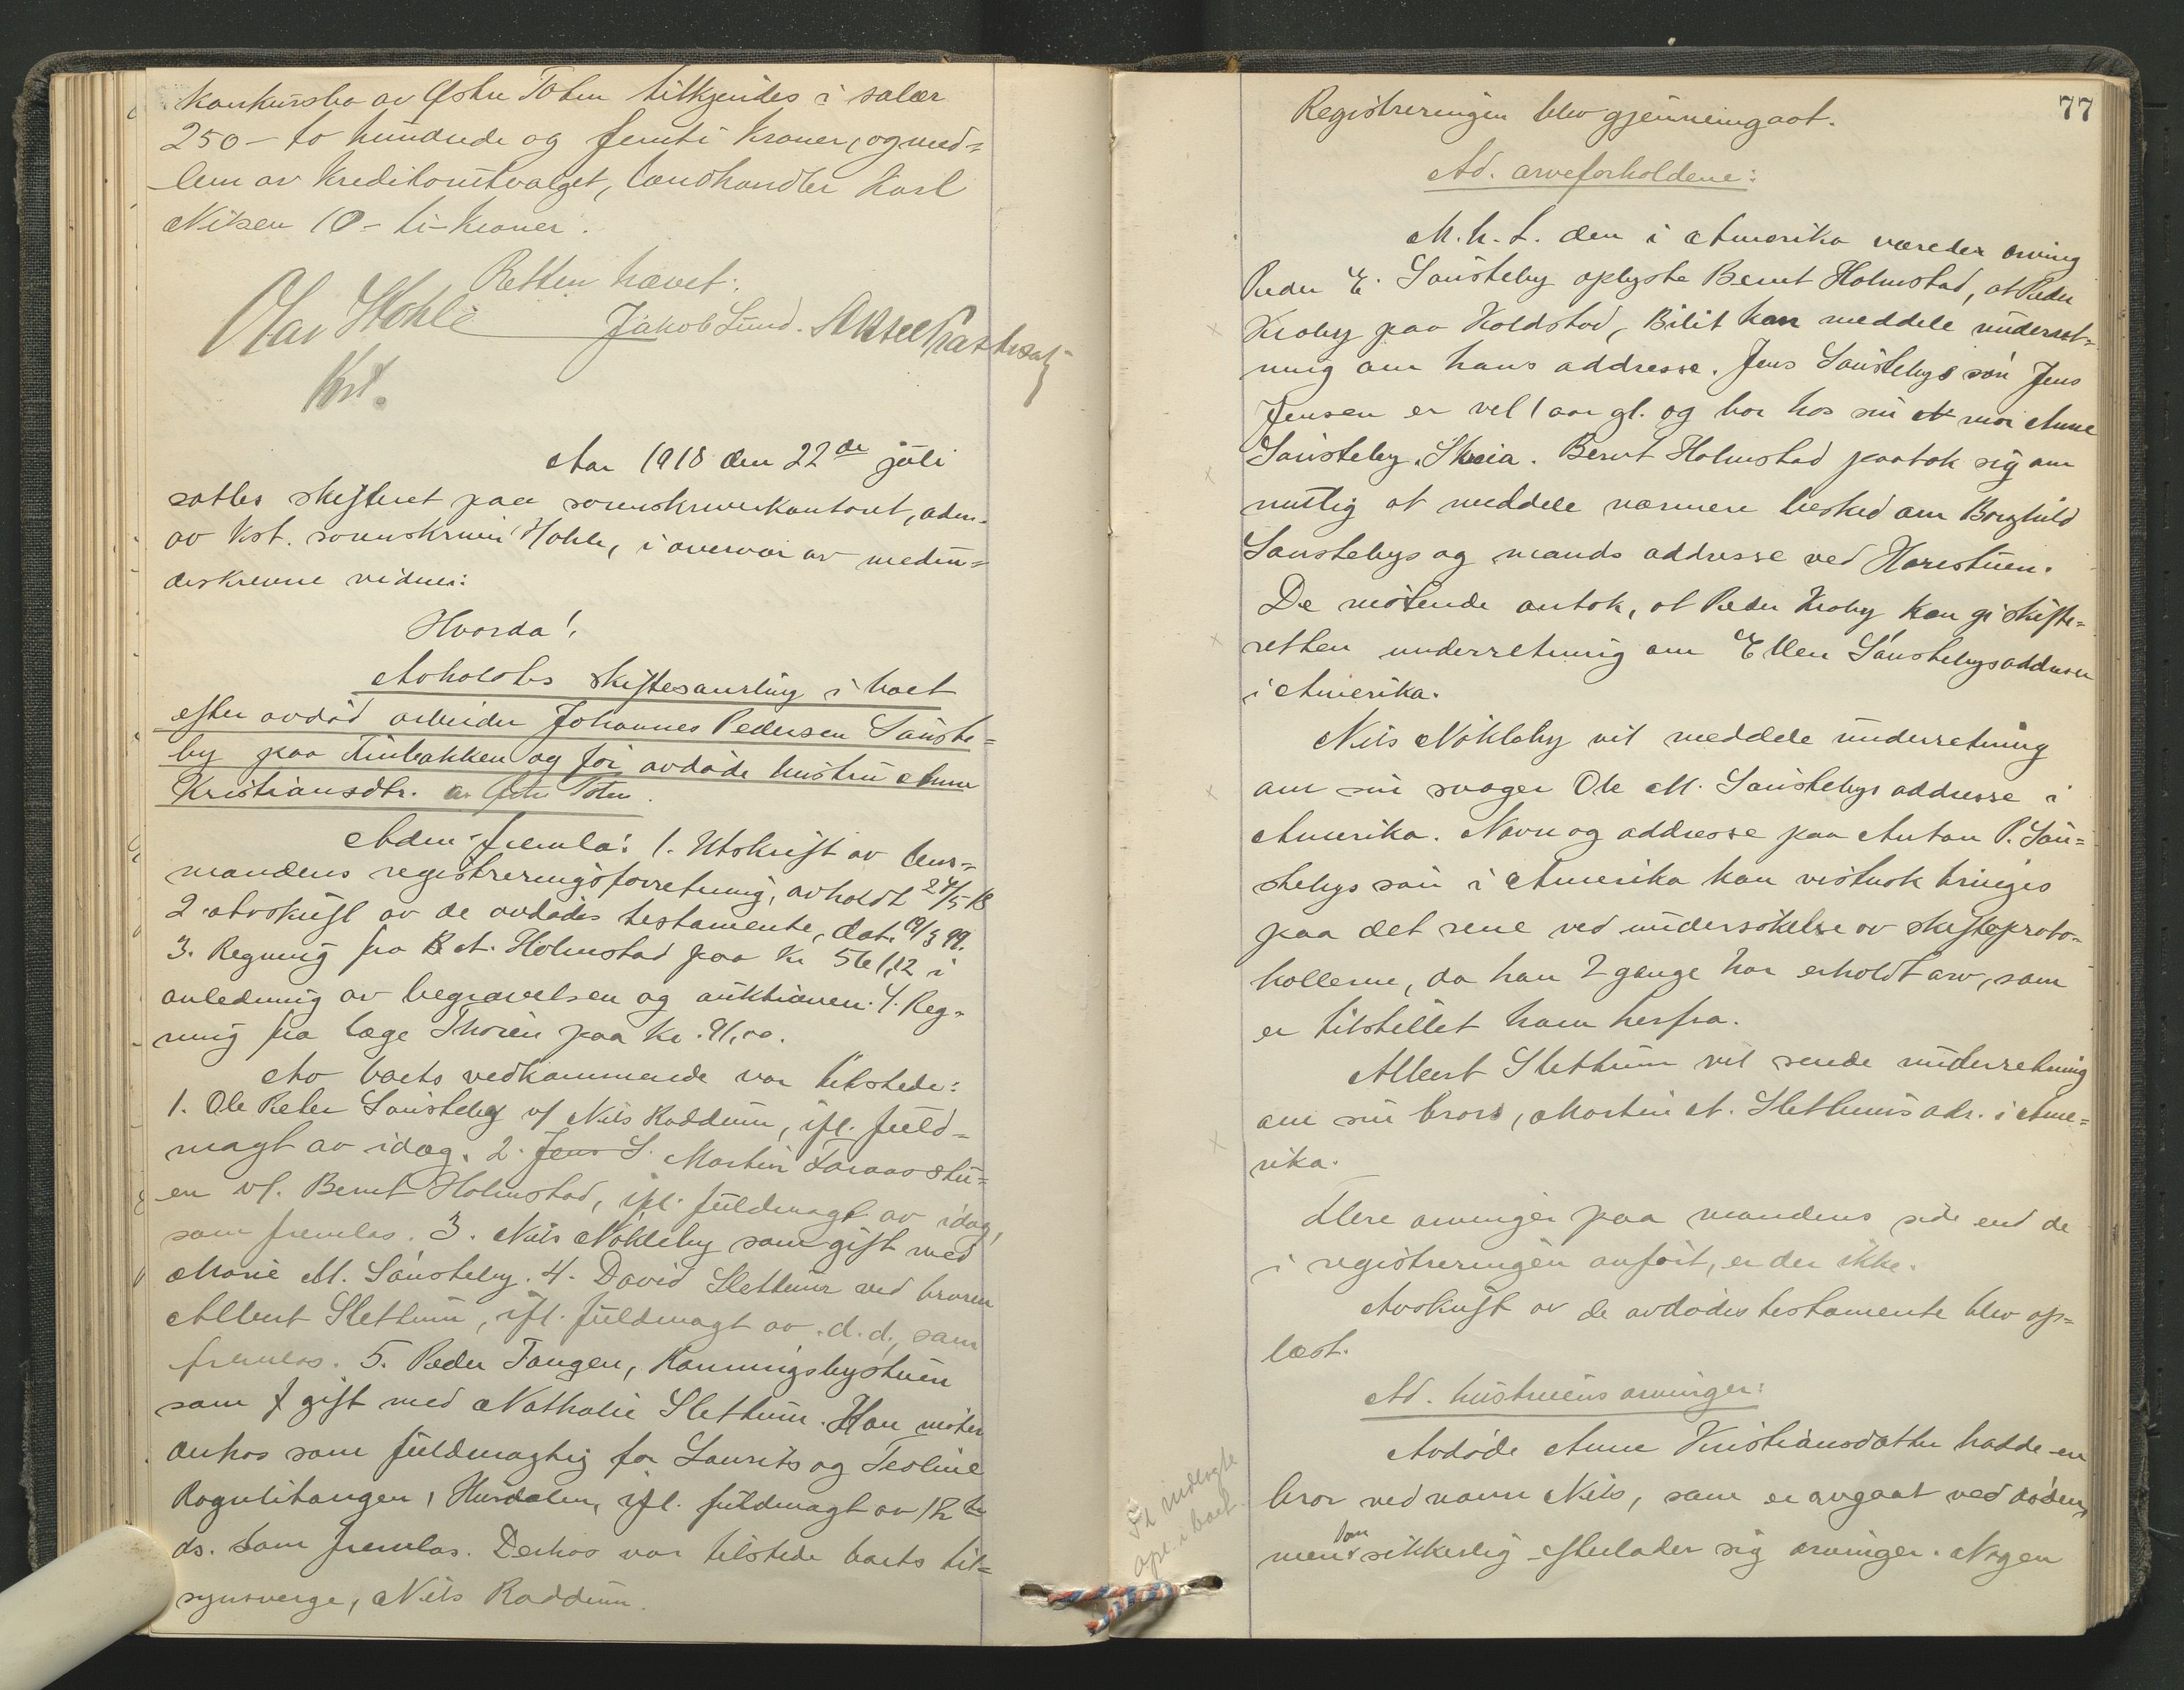 konkursbo av Østre Toten tilkjendes i salær
250 - to hundrede og femti kroner, og med=
lem av kreditorutvalget, landhandler Karl
Nilsen 10 - ti - kroner.
Retten hævet.
Olav Hohle Jakob Lund.
Kst.
Aar 1918 den 22de juli
sattes skifteret paa sorenskriverkontoret, adm.
av kst. sorenskriver Hohle, i overvær av medun=
derskrevne vidner:
Hvorda!
Avholdtes skiftesamling i boet
efter avdød arbeider Johannes Pedersen Sauste=
by paa Finbakken og før avdøde hustru Anne
Kristiansdtr. av Østre Toten.
Adm. fremla: 1. Utskrift av lens=
mandens registreringsforretning, avholdt 24/5 18
2 avskrift av de avdødes testamente, dat. 19/3 99.
3. Regning fra B. A. Holmstad paa kr 561,12 i
anledning av begravelsen og auktionen. 4. Reg=
ning fra læge Thorén paa kr. 91,00.
Av boets vedkommende var tilstede:
1. Ole Peter Sausteby v/ Nils Raddum, ifl. fuld=
magt av idag. 2. Jens S. Martin Faraasstu=
en v/. Bernt Holmstad, ifl. fuldmagt av idag,
som fremlas. 3. Nils Nökleby som gift med
Marie M. Sausteby. 4. David Slettum ved broren
Albert Slettum, ifl. fuldmagt av d. d., som
fremlas. 5. Peder Tangen, Kanningsbystuen
som gift med Nathalie Slettum. Han møter
derhos som fuldmægtig for Laurits og Teoline
Rognlitangen, Hurdalen, ifl. fuldmagt av 18 de
ds. som fremlas. Derhos var tilstede boets til=
synsverge, Nils Raddum.
77
Registreringen blev gjennemgaat.
Ad. arveforholdene:
M. h. t. den i Amerika værende arving
Peder E. Sausteby oplyste Bernt Holmstad, at Peder
Kraby paa Koldstad, Bilit kan meddele underret=
ning om hans addresse. Jens Saustebys søn Jens
Jensen er vel 1 aar gl. og bor hos sin mor Anne
Sausteby, Skreia. Bernt Holmstad paatok sig om
mulig at meddele nærmere besked om Borghild
Saustebys og mands addresse ved Harestuen.
De møtende antok, at Peder Kraby kan gi skifte=
retten underretning om Ellen Saustebys addresse
i Amerika.
Nils Nökleby vil meddele underretning
om sin svoger Ole M. Saustebys addresse i
Amerika. Navn og addresse paa Anton P. Sau=
stebys søn i Amerika kan vistnok bringes
paa det rene ved undersøkelse av skifteproto=
kollerne, da han 2 gange har erholdt arv, som
er tilstillet ham herfra.
Albert Slettum vil sende underretning
om sin brors, Martin A. Slettums adr. i Ame=
rika.
Flere arvinger paa mandens side end de
i registreringen anført, er der ikke.
Avskrift av de avdødes testamente blev op=
læst.
Ad. hustruens arvinger:
Avdøde Anne Kristiansdatter hadde en
bror ved navn Nils, som er avgaat ved døden,
men som sikkerlig efterlader sig arvinger. Nogen
i boet